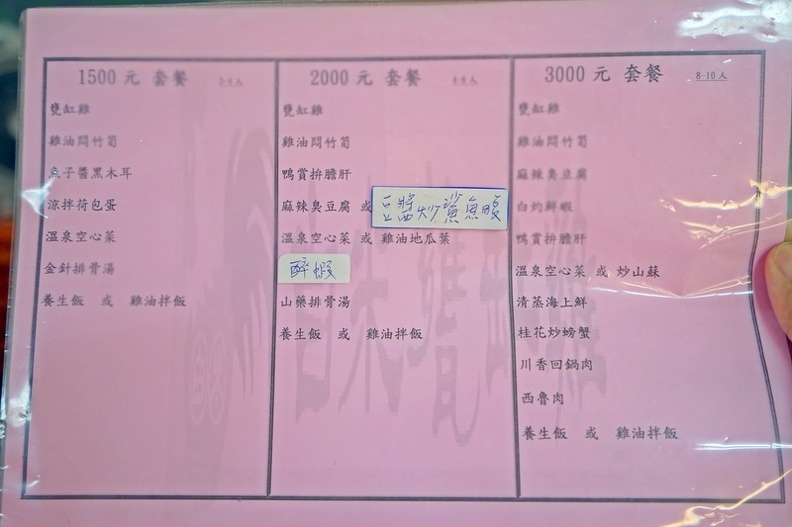 1500 元 套餐
甕缸雞
雞油悶竹筍
魚子醬黑木耳
涼拌荷包蛋
溫泉空心菜
金針排骨湯
養生飯 或 雞油拌飯
2000 元 套餐 4-6人
甕缸雞
雞油悶竹筍
鴨賞拚膽肝
麻辣臭豆腐 或 豆醬炒鯊魚腹
溫泉空心菜 或 雞油地瓜葉
醉蝦
山藥排骨湯
養生飯 或 雞油拌飯
3000 元 套餐 8-10人
甕缸雞
雞油悶竹筍
麻辣臭豆腐
白灼鮮蝦
鴨賞拚膽肝
溫泉空心菜 或 炒山蘇
清蒸海上鮮
桂花炒螃蟹
川香回鍋肉
西魯肉
養生飯 或 雞油拌飯